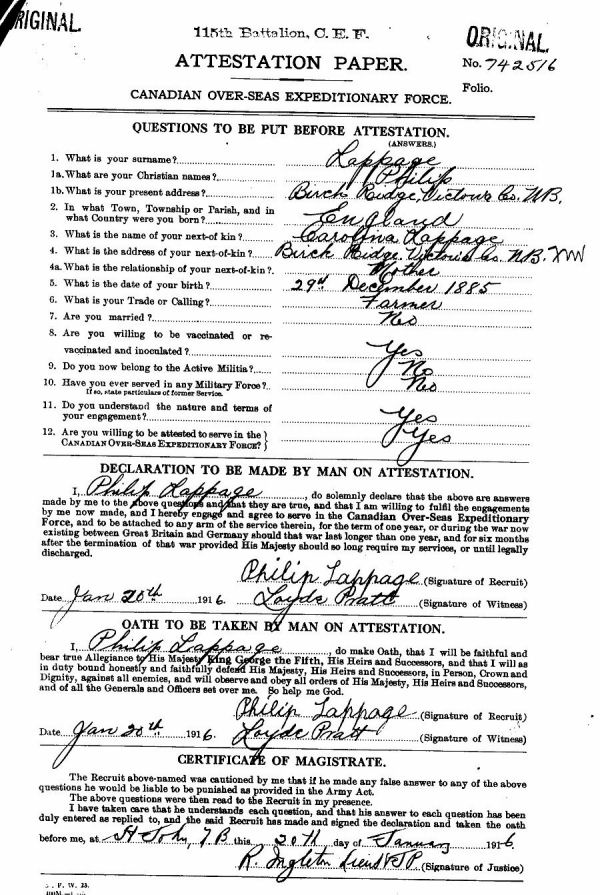 ORIGINAL.
115th Battalion, C. E. F.
ORIGINAL.
ATTESTATION PAPER.
No. 742516
Folio.
CANADIAN OVER-SEAS EXPEDITIONARY FORCE.
QUESTIONS TO BE PUT BEFORE ATTESTATION.
(ANSWERS.)
1. What is your surname? Lappage
1a. What are your Christian names? Philip
1b. What is your present address? Birch Ridge, Victoria Co. N.B.
2. In what Town, Township or Parish, and in
what Country were you born? England
3. What is the name of your next-of kin? Carolina Lappage
4. What is the address of your next-of-kin? Birch Ridge. Victoria Co. N.B.
4a. What is the relationship of your next-of-kin? Mother
5. What is the date of your birth? 29th December 1885
6. What is your Trade or Calling? Farmer
7. Are you married? No
8. Are you willing to be vaccinated or re-
vaccinated and inoculated? Yes
9. Do you now belong to the Active Militia? No
10. Have you ever served in any Military Force? No
If so, state particulars of former Service.
11. Do you understand the nature and terms of
your engagement? Yes
12. Are you willing to be attested to serve in the
CANADIAN OVER-SEAS EXPEDITIONARY FORCE? Yes
DECLARATION TO BE MADE BY MAN ON ATTESTATION.
I, Philip Lappage, do solemnly declare that the above are answers
made by me to the above questions and that they are true, and that I am willing to fulfil the engagements
by me now made, and I hereby engage and agree to serve in the Canadian Over-Seas Expeditionary
Force, and to be attached to any arm of the service therein, for the term of one year, or during the war now
existing between Great Britain and Germany should that war last longer than one year, and for six months
after the termination of that war provided His Majesty should so long require my services, or until legally
discharged.
Philip Lappage (Signature of Recruit)
Date Jan 20th 1916. Loyde Pratt (Signature of Witness)
OATH TO BE TAKEN BY MAN ON ATTESTATION.
I, Philip Lappage, do make Oath, that I will be faithful and
bear true Allegiance to His Majesty King George the Fifth, His Heirs and Successors, and that I will as
in duty bound honestly and faithfully defend His Majesty, His Heirs and Successors, in Person, Crown and
Dignity, against all enemies, and will observe and obey all orders of His Majesty, His Heirs and Successors,
and of all the Generals and Officers set over me. So help me God.
Philip Lappage (Signature of Recruit)
Date Jan 20th 1916. Loyde Pratt (Signature of Witness)
CERTIFICATE OF MAGISTRATE.
The Recruit above-named was cautioned by me that if he made any false answer to any of the above
questions he would be liable to be punished as provided in the Army Act.
The above questions were then read to the Recruit in my presence.
I have taken care that he understands each question, and that his answer to each question has been
duly entered as replied to, and the said Recruit has made and signed the declaration and taken the oath
before me, at St John, N B this 20th day of January 1916.
R. Ingleton Lieut & JP (Signature of Justice)
F. W. 23.